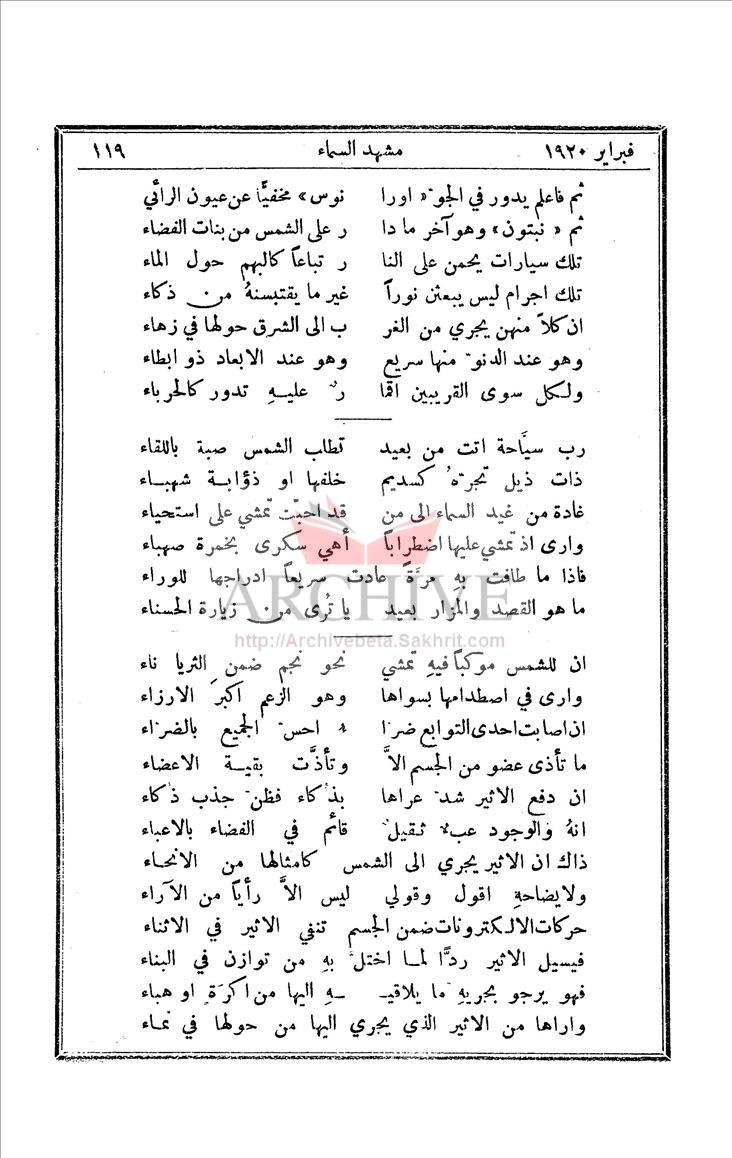 فبراير ١٩٢٠ مشهد السماء ١١٩
ثم فاعلم يدور في الجوّ « اورا نوس » مخفيًّا عن عيون الرائي
ثم « نبتون » وهو آخر ما دا ر على الشمس من بنات الفضاء
تلك سيارات يحمن على النا ر تباعاً كالبهم حول الماء
تلك اجرام ليس يبعثن نوراً غير ما يقتبسنهُ من ذكاء
ان كلاً منهن يجري من الغر ب الى الشرق حولها في زهاء
وهو عند الدنوّ منها سريع وهو عند الابعاد ذو ابطاء
ولكل سوى القريبين اقما رٌ عليهِ تدور كالحرباء
رب سيَّاحة اتت من بعيد تطلب الشمس صبة باللقاء
ذات ذيل تجرّهُ كسديم خلفها او ذؤابة شهباء
غادة من غيد السماء الى من قد احبّت تمشي على استحياء
وارى اذ تمشي عليها اضطراباً أهي سكرى بخمرة صهباء
فاذا ما طافت بهِ مرَّةً عادت سريعاً ادراجها للوراء
ما هو القصد والمزار بعيد يا تُرى من زيارة الحسناء
ARCHIVE
http://Archivebeta.Sakhrit.com
ان للشمس موكباً فيهِ تمشي نحو نجم ضمن الثريا ناء
وارى في اصطدامها بسواها وهو الزعم اكبرَ الارزاء
ان اصابت احدى التوابع ضرّا ء احسّ الجميع بالضرّاء
ما تأذى عضو من الجسم الاَّ وتأذَّت بقيـة الاعضاء
ان دفع الاثير شدّ عراها بذُكاء فظنّ جذب ذُكاء
انهُ والوجود عبءٌ ثقيلٌ قائم في الفضاء بالاعباء
ذاك ان الاثير يجري الى الشمس كامثالها من الانحاء
ولايضاحهِ اقول وقولي ليس الاَّ رأياً من الآراء
حركات الالكترونات ضمن الجسم تنفي الاثير في الاثناء
فيسيل الاثير ردًّا لمـا اختلَّ بهِ من توازن في البناء
فهو يرجو بجريهِ ما يلاقيـ ـهِ اليها من اكرَةٍ او هباء
واراها من الاثير الذي يجري اليها من حولها في نمـاء